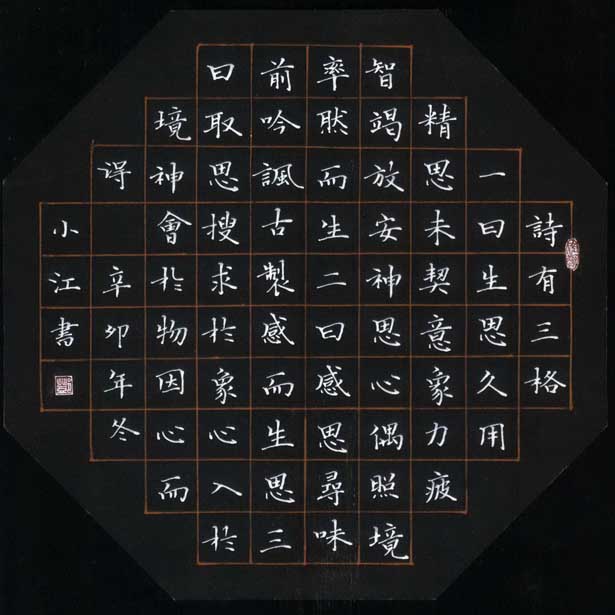 詩有三格
一曰生思久用
精思未契意象力疲
智竭放安神思心偶照境
率然而生二曰感思尋味
前吟諷古製感而生思三
曰取思搜求於象心入於
境神會於物因心而
得 辛卯年冬
小江書